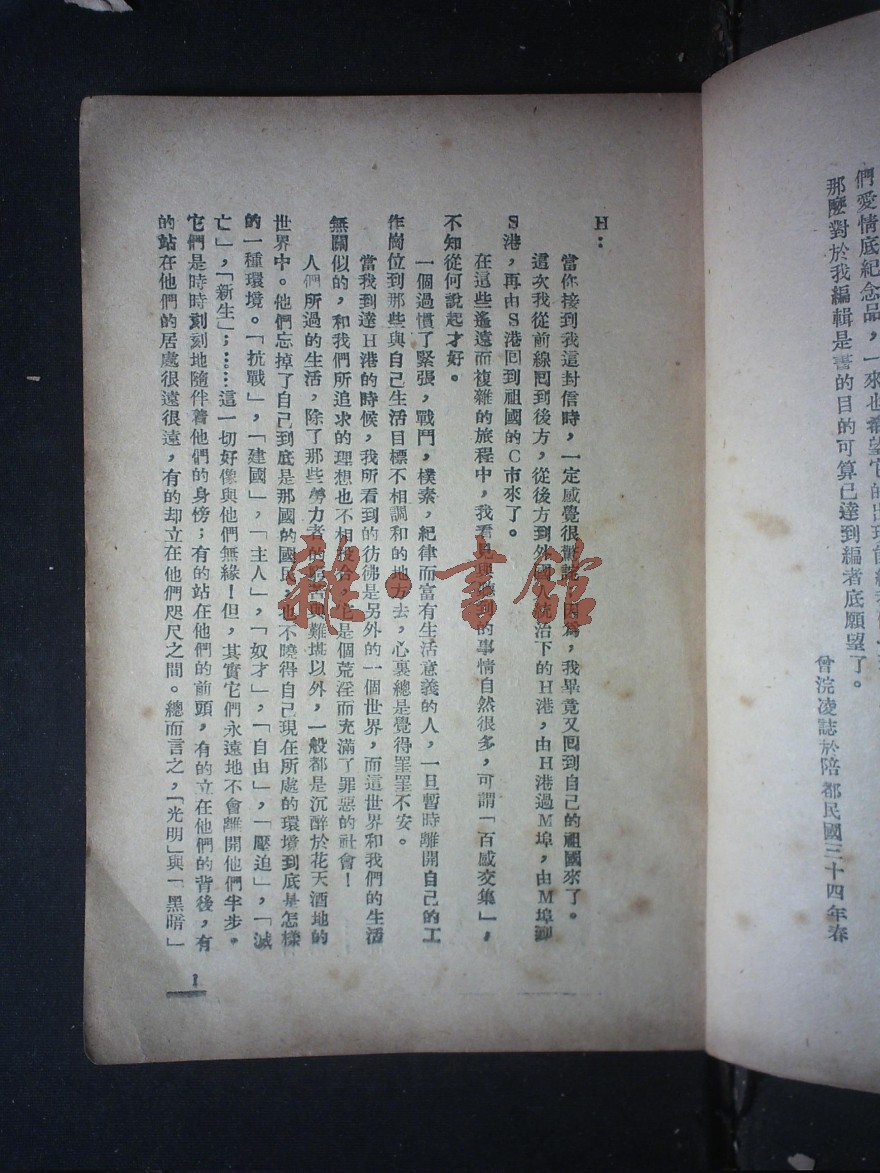 們愛情底紀念品，一來也希望它的出現能
那麼對於我編輯是書的目的可算已達到編者底願望了。
曾浣凌誌於陪都民國三十四年春
H：
當你接到我這封信時，一定感覺很驚詫，因為，我畢竟又回到自己的祖國來了。
這次我從前線回到後方，從後方到外國人統治下的H港，由H港過M埠，由M埠
S港，再由S港回到祖國的C市來了。
在這些遙遠而複雜的旅程中，我看見與聽到的事情自然很多，可謂「百感交集」，
不知從何說起才好。
一個過慣了緊張，戰鬥，樸素，紀律而富有生活意義的人，一旦暫時離開自己的工
作崗位到那些與自己生活目標不相調和的地方去，心裏總是覺得罣罣不安。
當我到達H港的時候，我所看到的彷彿是另外的一個世界，而這世界和我們的生活
無關似的，和我們所追求的理想也不相投合，它是個荒淫而充滿了罪惡的社會！
人們所過的生活，除了那些勞力者的窮苦與難堪以外，一般都是沉醉於花天酒地的
世界中。他們忘掉了自己到底是那國的國民，也不曉得自己現在所處的環境到底是怎樣
的一種環境。「抗戰」，「建國」，「主人」，「奴才」，「自由」，「壓迫」，「滅
亡」，「新生」；……這一切好像與他們無緣！但，其實它們永遠地不會離開他們半步。
它們是時時刻刻地隨伴着他們的身傍；有的站在他們的前頭，有的立在他們的背後，有
的站在他們的居處很遠很遠，有的却立在他們咫尺之間。總而言之，「光明」與「黑暗」
1
雜·書館